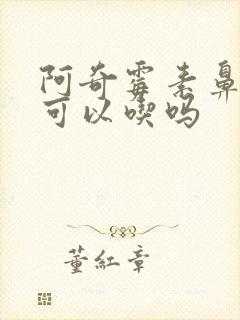 阿奇霉素鼻
可以喫吗
董紅章